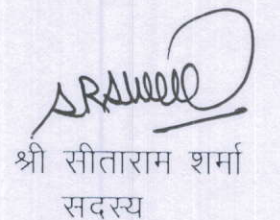 श्री सीताराम शर्मा
सदस्य